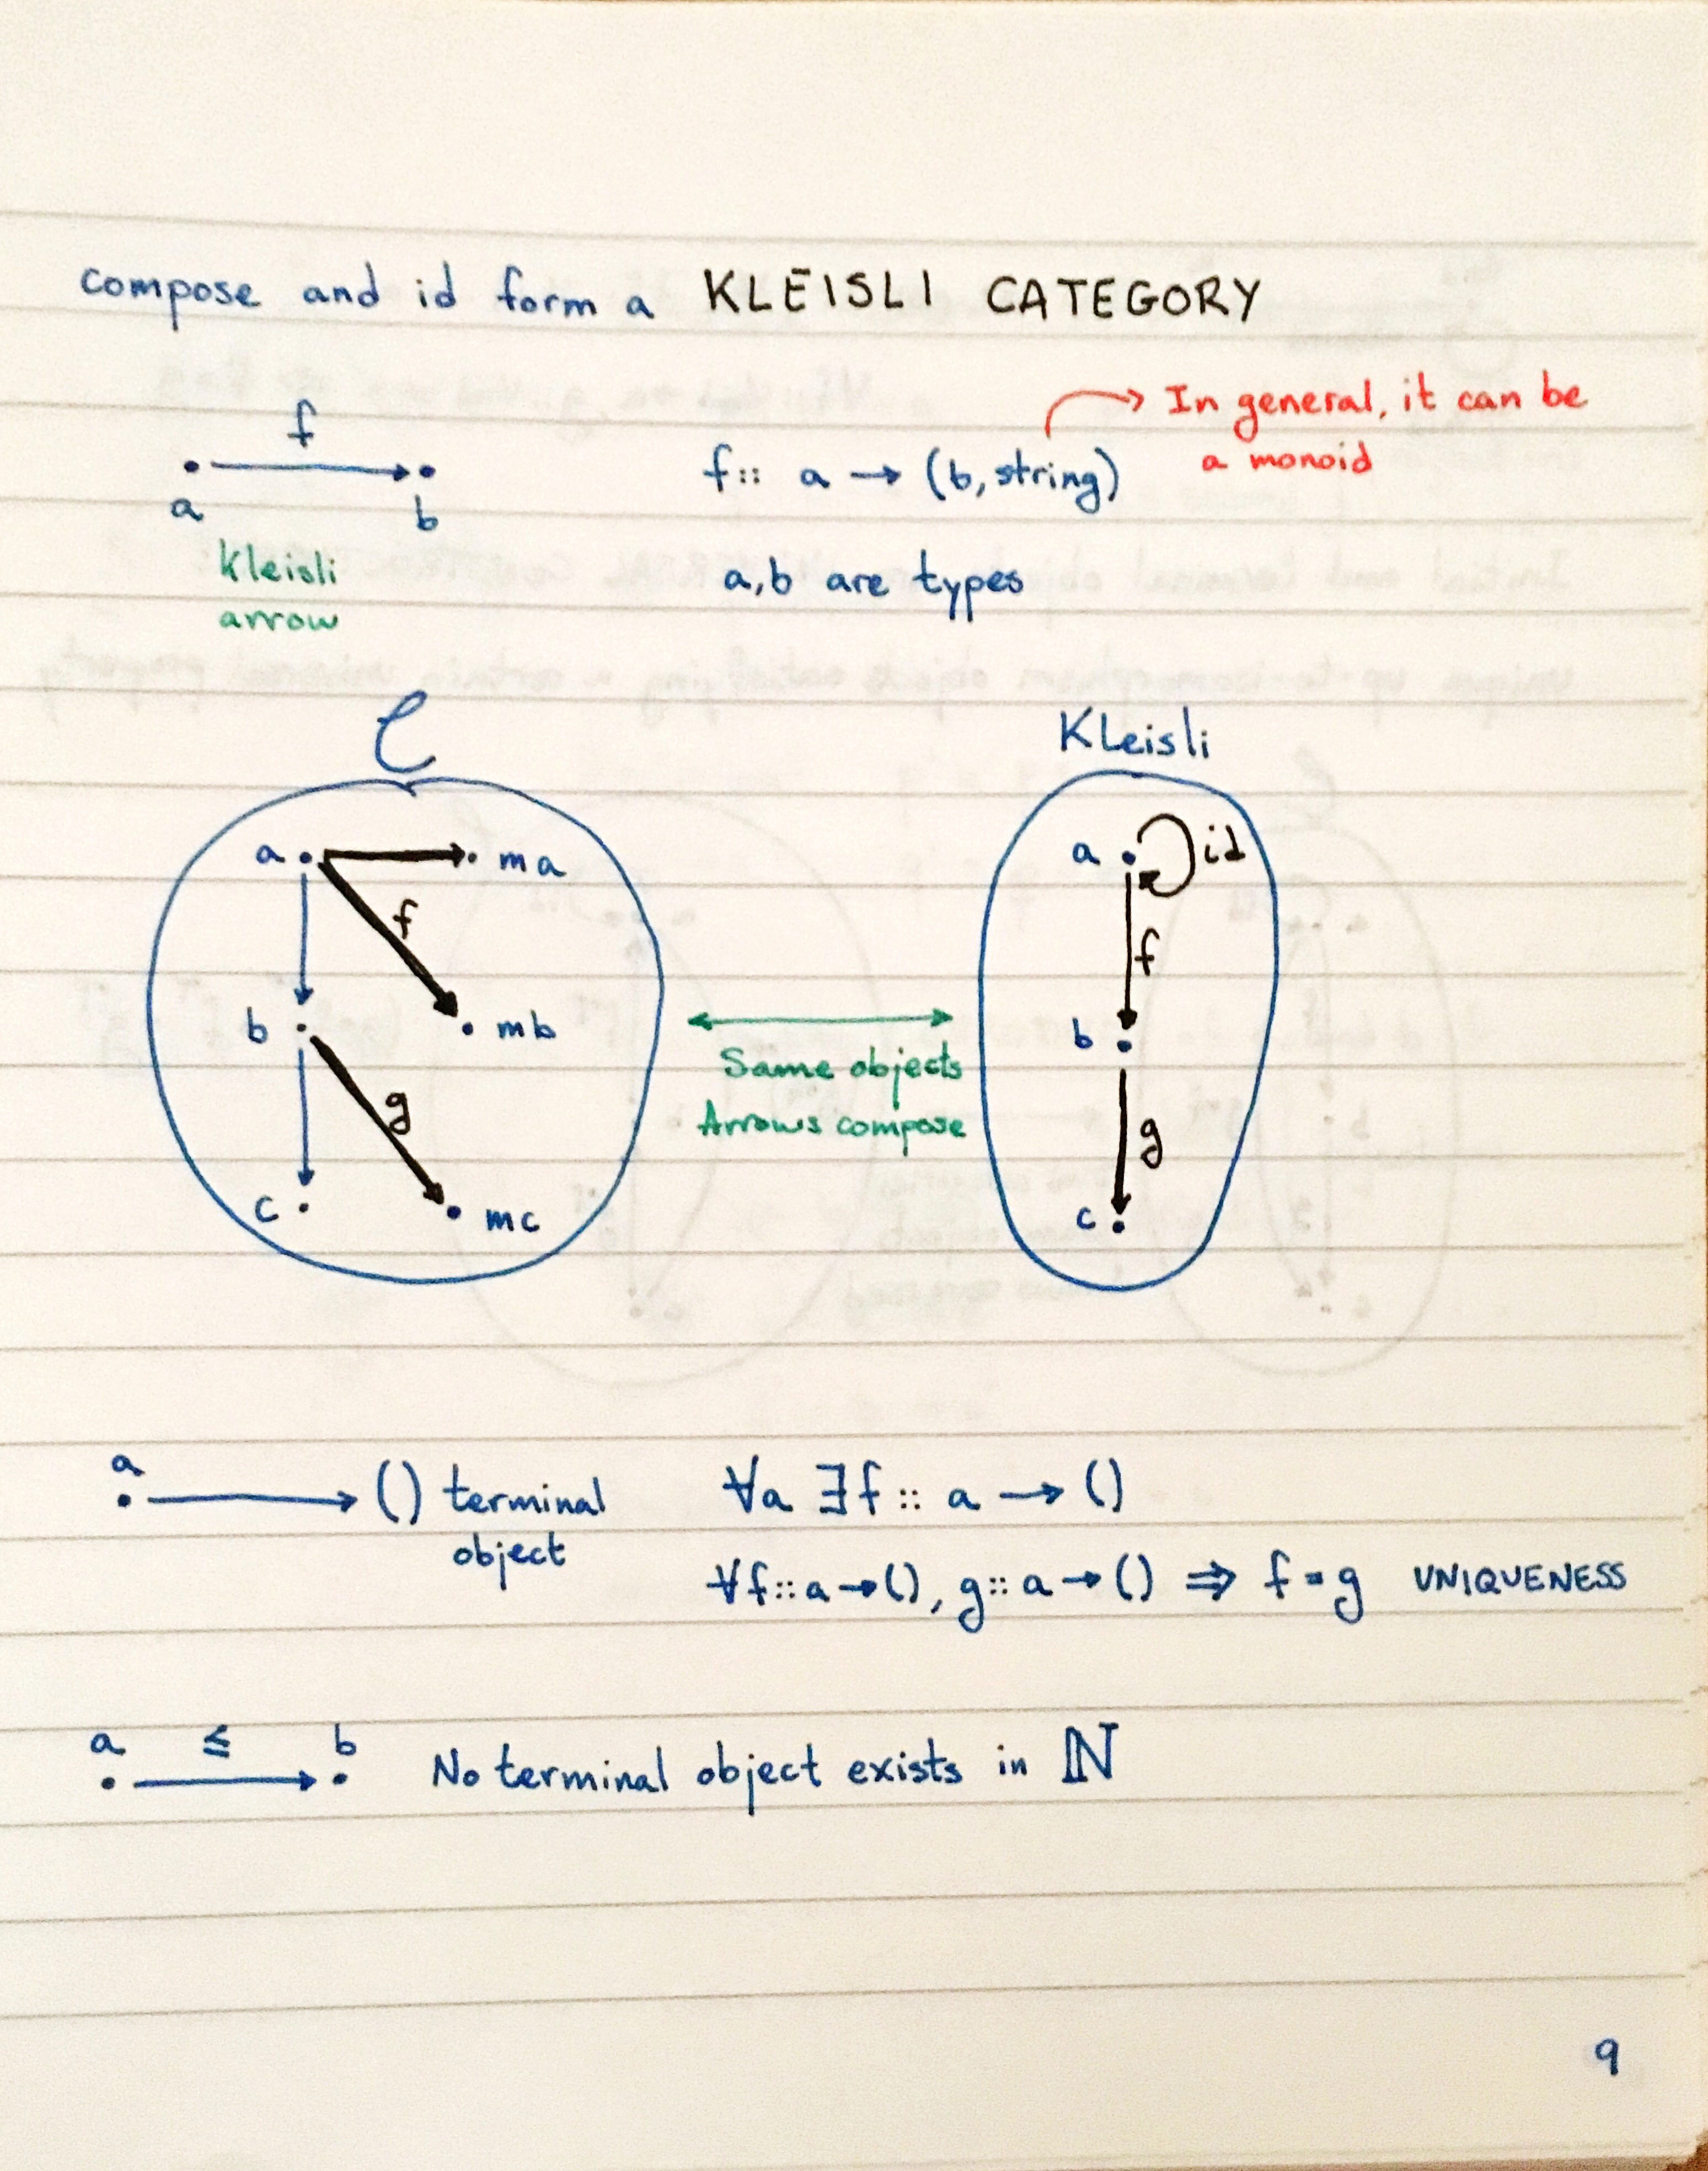 compose and id form a KLEISLI CATEGORY
f
a b
Kleisli
arrow
f :: a → (b, string)
In general, it can be
a monoid
a, b are types
C
a ma
f
b mb
g
c mc
Same objects
Arrows compose
Kleisli
a id
f
b
g
c
a
() terminal
object
∀a ∃f :: a → ()
∀f :: a → (), g :: a → () ⇒ f = g UNIQUENESS
a ≤ b
No terminal object exists in ℕ
9